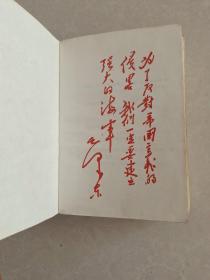 为了反對帝国主义的
侵畧我们一定要建立
强大的海軍
毛泽东